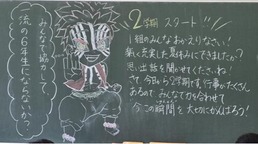 2学期 スタート!!
1組のみんなおかえりなさい!
気く充実した夏休みにできましたか?
思い出話を聞かせてくださいね!
さて、今日から2学期です。行事がたくさん
あるので、みんなで力を合わせて
今この瞬間を大切にがんばろう!
みんなで協力して
一流の6年生にならないか?